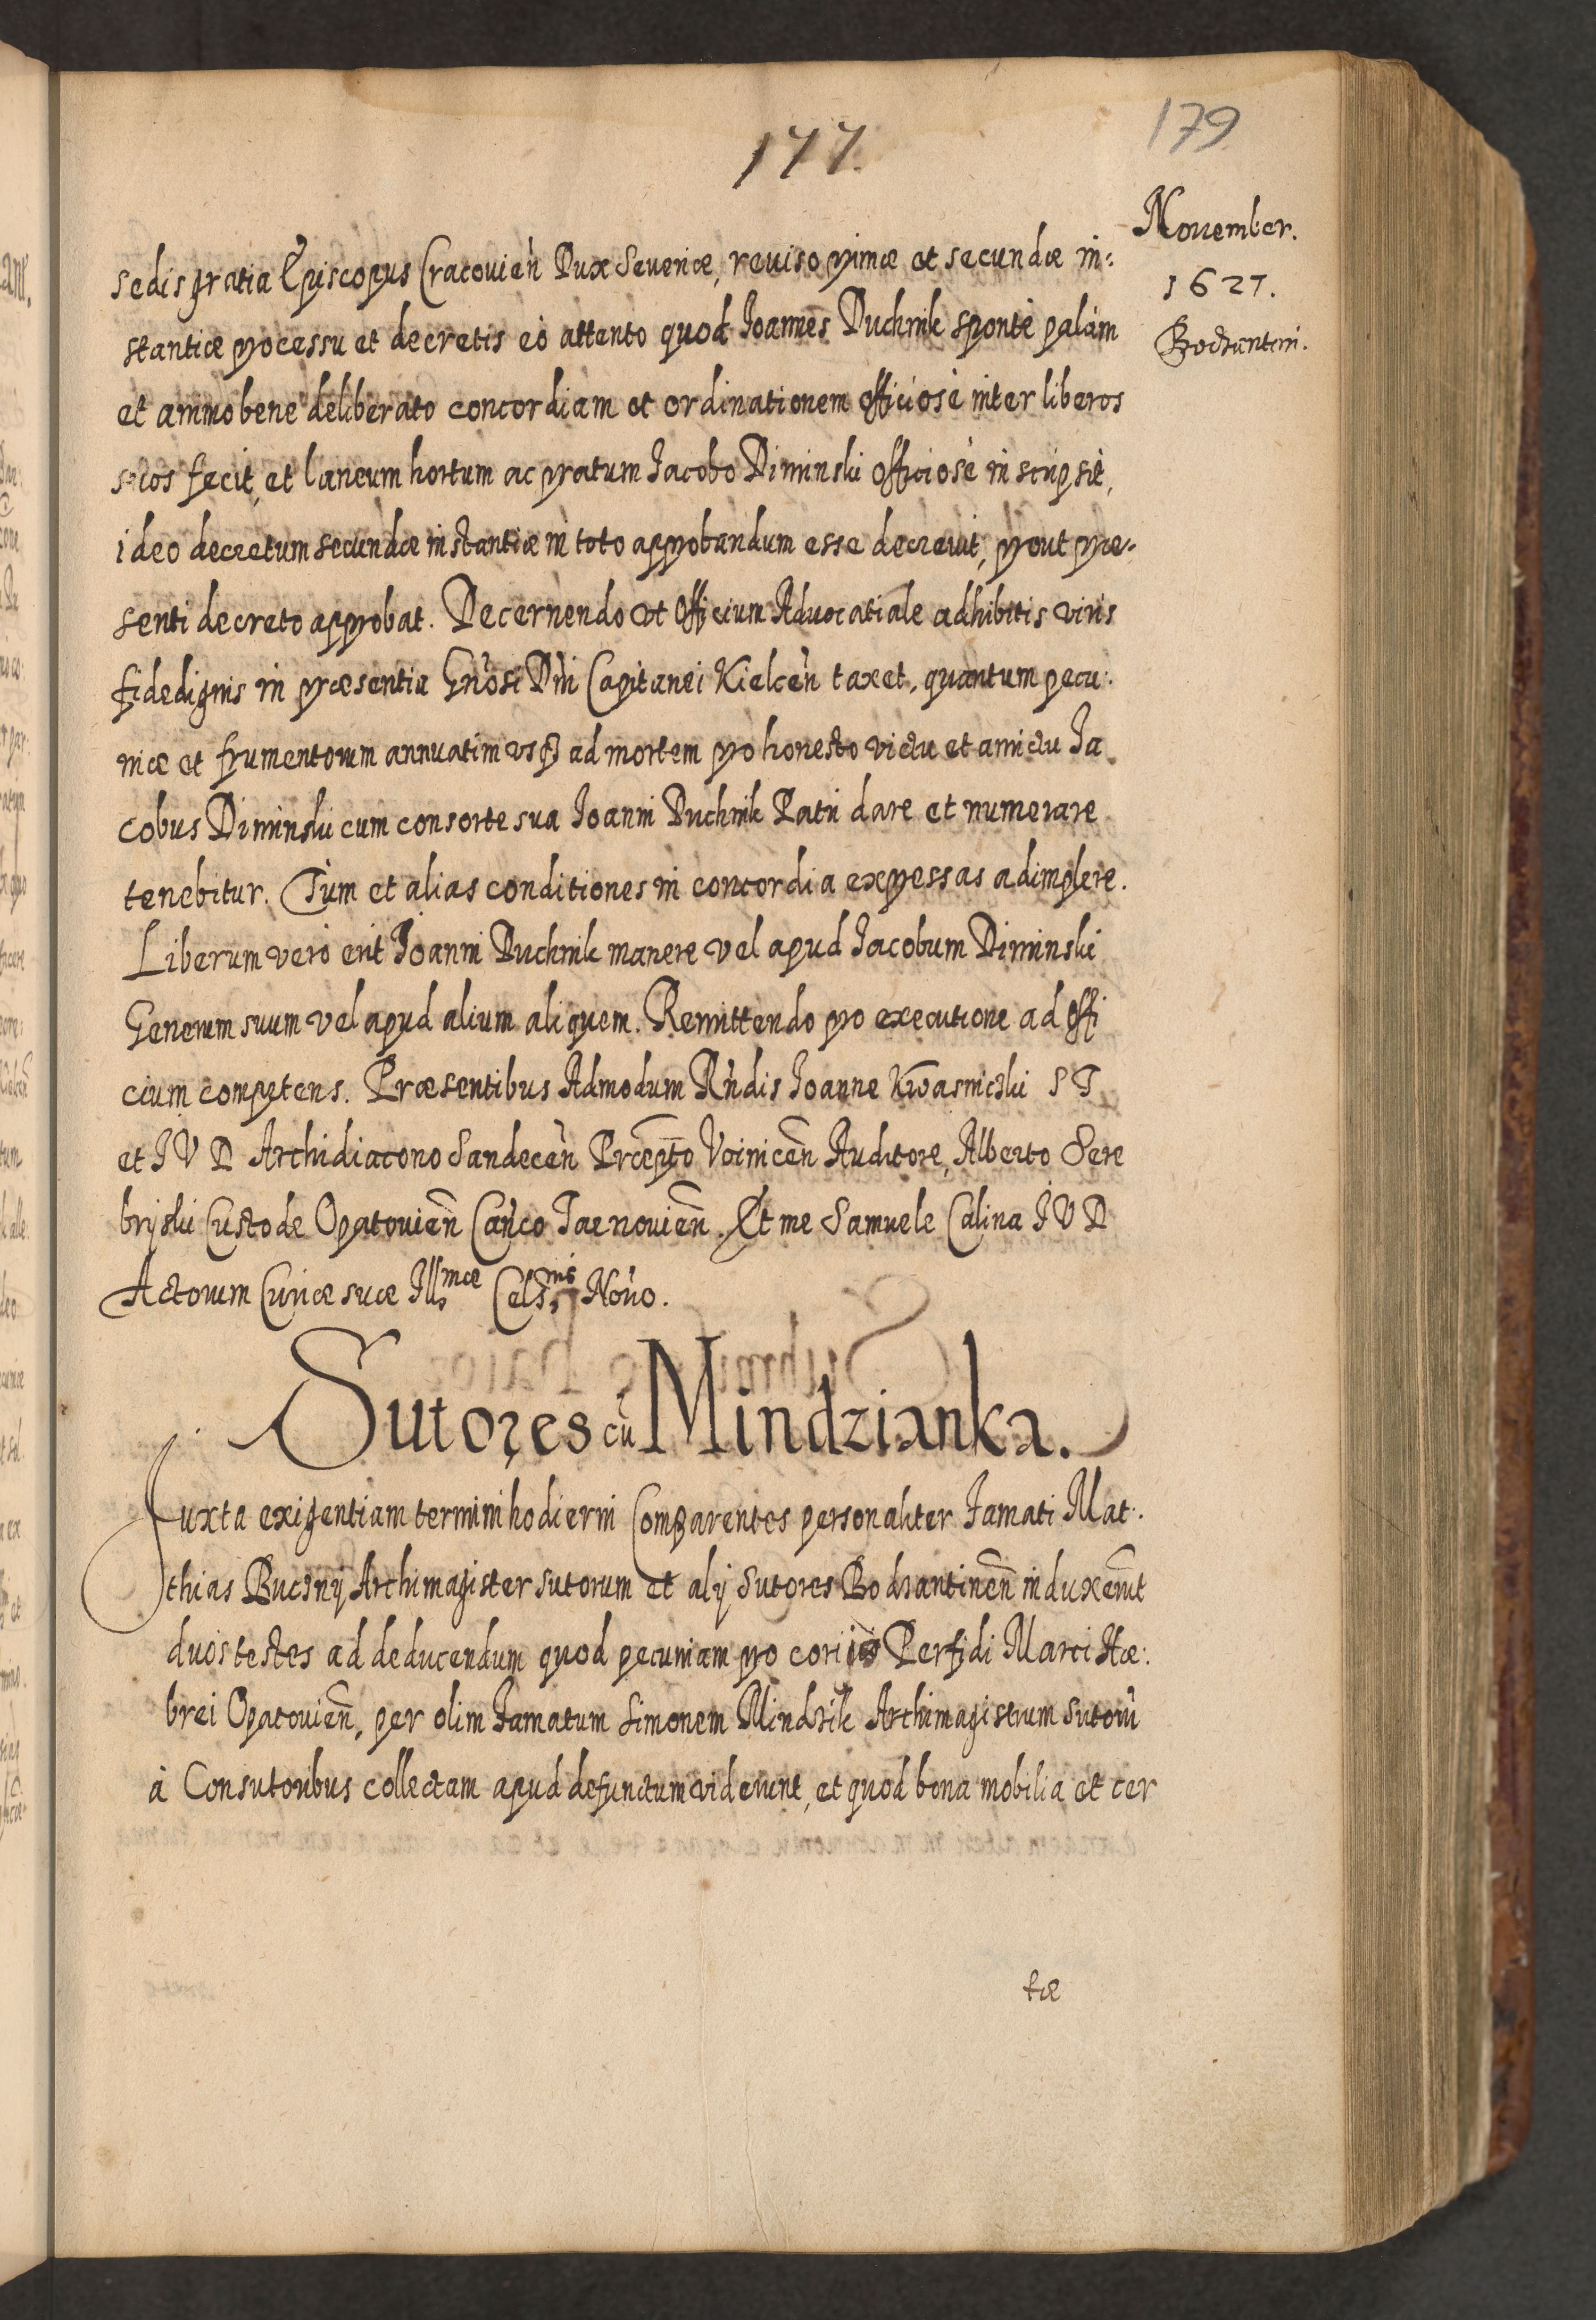 177.
179
November.
1627.
Bodzantini.
sedis gratia Episcopus Cracovien̄ Dux Severiæ, reviso primæ et secundæ in:
stantiæ processu et decretis eò attento quod Ioannes Duchnik spontè palàm
et animo bene deliberato concordiam et ordinationem officiosè inter liberos
suos fecit, et laneum hortum ac pratum Iacobo Diminski officiosè inscripsit,
ideo decretum secundæ instantiæ in toto approbandum esse decrevit, prout præ-
senti decreto approbat. Decernendo vt Officium Advocatiale adhibitis viris
fidedignis in præsentia Gn̄osi Dn̄i Capitanei Kielcen̄ taxet, quantum pecu:
niæ et frumentorum annuatim vsq₃ ad mortem pro honesto victu et amictu Ia
cobus Diminski cum consorte sua Ioanni Duchnik Patri dare et numerare
tenebitur. Tùm et alias conditiones in concordia expressas adimplere.
Liberum verò erit Ioanni Duchnik manere vel apud Iacobum Diminski
Generum suum vel apud alium aliquem. Remittendo pro executione ad offi
cium competens. Præsentibus Admodum Rn̄dis Ioanne Kwasnicki S T
et I V D Archidiacono Sandecen̄ Præp̄to Voinicen̄ Auditore, Alberto Sere
brijski Custode Opatovien̄ Can̄co Tarnovien̄. Et me Samuele Calina I V D
Actorum Curiæ suæ Illmæ Celsmis Not̄io.
Sutores cū Mindzianka.
Iuxta exigentiam termini hodierni Comparentes personaliter Famati Mat:
thias Buczny Archimagister sutorum et alij Sutores Bodzantinen̄ induxer̄ut
duos testes ad deducendum quod pecuniam pro coriis Perfidi Marci Hæ:
brei Opatovien̄, per olim Famatum Simonem Mindzik Archimagistrum sutorū
à Consutoribus collectam apud defunctum viderunt, et quod bona mobilia et cer
tæ